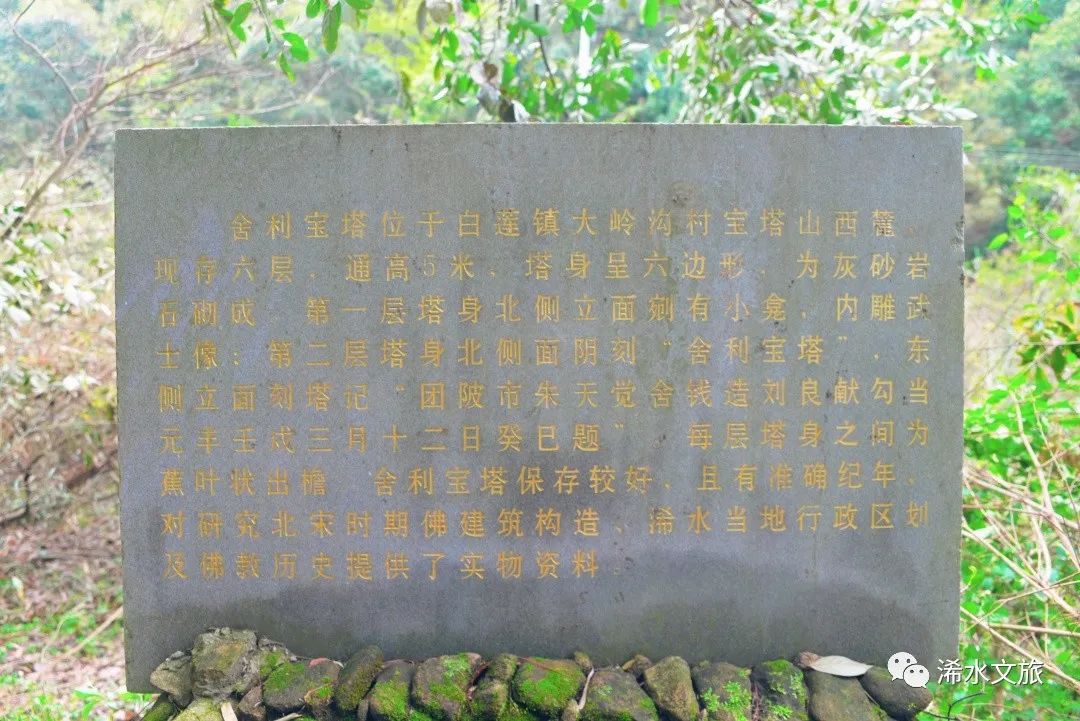 舍利宝塔位于白莲镇大岭沟村宝塔山西麓，
现存六层，通高5米，塔身呈六边形，为灰砂岩
石砌成 第一层塔身北侧立面剜有小龛，内雕武
士像；第二层塔身北侧面阴刻“舍利宝塔”，东
侧立面刻塔记“团陂市朱天觉舍钱造刘良献勾当
元丰壬戌三月十二日癸巳题”。每层塔身之间为
蕉叶状出檐 舍利宝塔保存较好，且有准确纪年，
对研究北宋时期佛建筑构造、浠水当地行政区划
及佛教历史提供了实物资料
浠水文旅